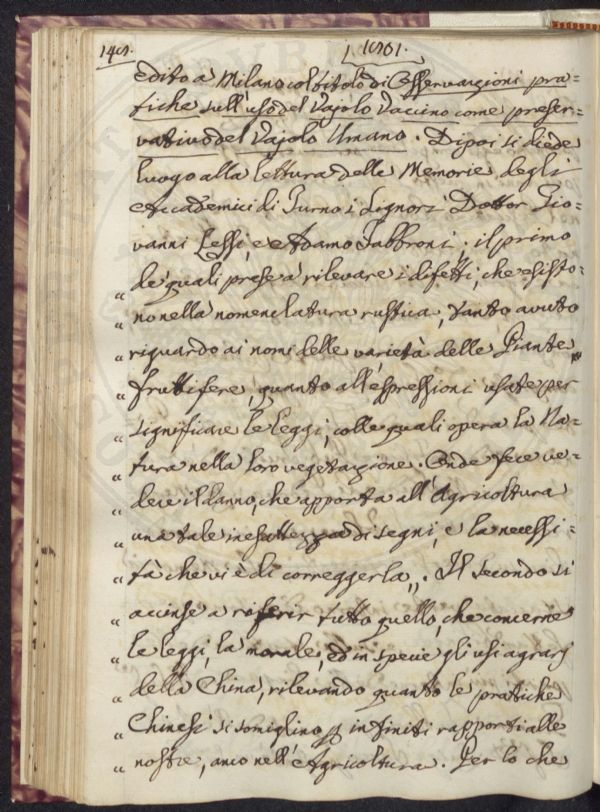 148.
1801.
edito a Milano col titolo di Osservazioni pra=
tiche sull'uso del Vajolo Vaccino come preser=
vativo del Vajolo Umano. Dipoi si diede
luogo alla lettura delle Memorie degli
Accademici di Turno i Signori Dottor Gio=
vanni Lessi, e Adamo Fabbroni; il primo
„ de' quali prese a rilevare i difetti, che esisto=
„ no nella nomenclatura rustica, tanto avuto
„ riguardo ai nomi delle varietà delle Piante
„ fruttifere, quanto all'espressioni usate per
„ significare le leggi, colle quali opera la Na=
„ tura nella loro vegetazione. Onde fece ve=
„ dere il danno, che apporta all'Agricoltura
„ una tale inesattezza di segni, e la necessi=
„ tà che vi è di correggerla„. Il secondo si
„ accinse a riferir tutto quello, che concerne
„ le leggi, la morale, ed in specie gli usi agrarj
„ della China, rilevando quanto le pratiche
„ Chinesi si somiglino p infiniti rapporti alle
„ nostre, anco nell'Agricoltura. Per lo che